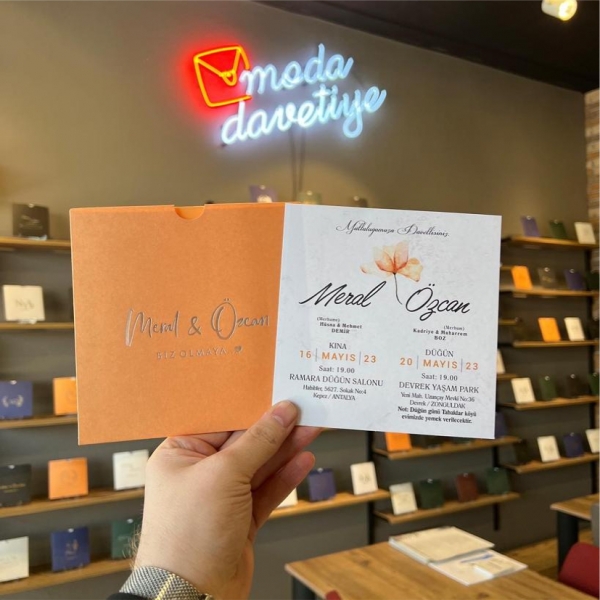 moda
davetiye
Meral & Özcan
BİZ OLMAYA..
Mutluluğumuza Davetlisiniz
Meral Özcan
(Merhume)
Hüsna & Mehmet
DEMİR
(Merhum)
Kadriye & Muharrem
BOZ
KINA
16 | MAYIS | 23
Saat: 19.00
RAMARA DÜĞÜN SALONU
Habibler, 5627. Sokak No:4
Kepez / ANTALYA
DÜĞÜN
20 | MAYIS | 23
Saat: 19.00
DEVREK YAŞAM PARK
Yeni Mah. Uzunçay Mevki No:36
Devrek / ZONGULDAK
Not: Düğün günü Tabaklar köyü
evimizde yemek verilecektir.